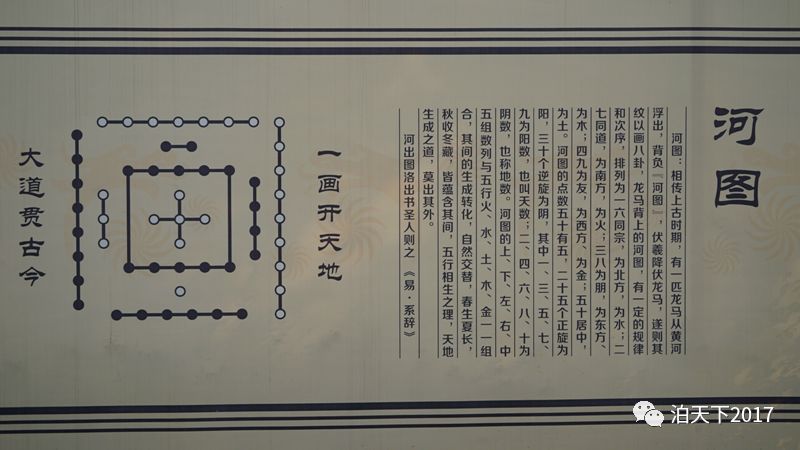 河图
河图：相传上古时期，有一匹龙马从黄河
浮出，背负『河图』，伏羲降伏龙马，遂则其
纹以画八卦，龙马背上的河图，有一定的规律
和次序，排列为一六同宗，为北方，为水；二
七同道，为南方，为火；三八为朋，为东方、
为木；四九为友，为西方、为金；五十居中，
为土。河图的点数五十有五，二十五个正旋为
阳，三十个逆旋为阴，其中一、三、五、七、
九为阳数，也叫天数；二、四、六、八、十为
阴数，也称地数。河图的上、下、左、右、中
五组数列与五行火、水、土、木、金一一组
合，其间的生成转化，自然交替，春生夏长，
秋收冬藏，皆蕴含其间，五行相生之理，天地
生成之道，莫出其外。
河出图洛出书圣人则之 《易·系辞》
一画开天地
大道贯古今
泊天下2017